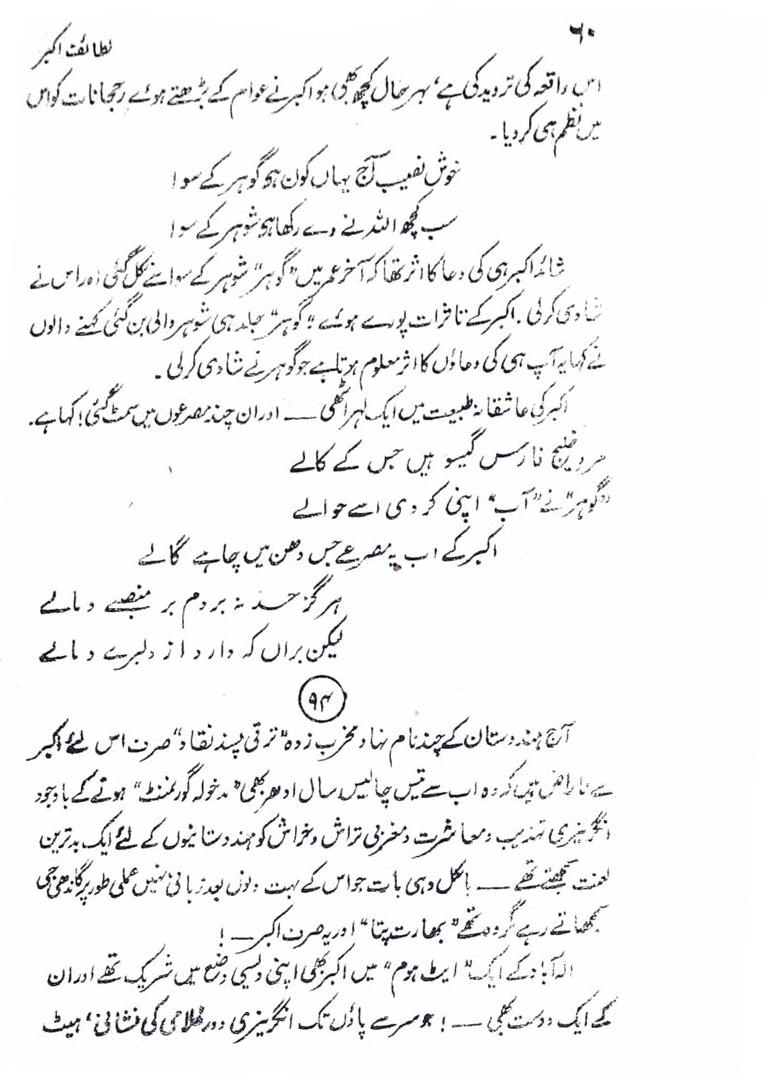 ۶۰
لطائف اکبر
اس واقعہ کی تردید کی ہے، بہر حال کچھ بھی ہو اکبر نے عوام کے بڑھتے ہوئے رحجانات کو اس
میں نظم ہی کر دیا ۔
خوش نصیب آج یہاں کون ہی گوہر کے سوا
سب کچھ اللہ نے دے رکھا ہی شوہر کے سوا
شائد اکبر ہی کی دعا کا اثر تھا کہ آخر عمر میں "گوہر" شوہر کے سوا سے نکل گئی اور اس نے
شادی کر لی ۔ اکبر کے تاثرات پورے ہوئے "گوہر" جلد ہی شوہر والی بن گئی کہنے والوں
نے کہا یہ آپ ہی کی دعاؤں کا اثر معلوم ہوتا ہے جو گوہر نے شادی کر لی ۔
اکبر کی عاشقانہ طبیعت میں ایک لہر اٹھی ــ اور ان چند مصرعوں میں سمٹ گئی! کہا ہے ۔
خلیج فارس گیسو ہیں جس کے کالے
"گوہر" نے "آب" اپنی کر دی اسے حوالے
اکبر کے اب یہ مصرعے جس دھن میں چاہے گالے
ہرگز حسد نہ بردم بر منصبے و مالے
لیکن براں کہ دارد از دلبرے و مالے
۹۴
آج ہندوستان کے چند نام نہاد مخرب زدہ "ترقی پسند نقاد" صرف اس لئے اکبر
سے ناراض ہیں کہ وہ اب سے تیس چالیس سال ادھر بھی "مدخولہ گورنمنٹ" ہونے کے باوجود
انگریزی تہذیب و معاشرت و مغربی تراش و خراش کو ہندوستانیوں کے لئے ایک بدترین
لعنت سمجھتے تھے ــ بالکل وہی بات جو اس کے بہت دنوں بعد زبانی نہیں عملی طور پر گاندھی جی
سمجھاتے رہے گر وہ تھے "بھارت پتا" اور یہ صرف اکبر ــ !
الہ آباد کے ایک "ایٹ ہوم" میں اکبر بھی اپنی دلیسی وضع میں شریک تھے اور ان
کے ایک دوست بھی ــ ! جو سر سے پاؤں تک انگریزی دور غلامی کی نشانی، ہیٹ